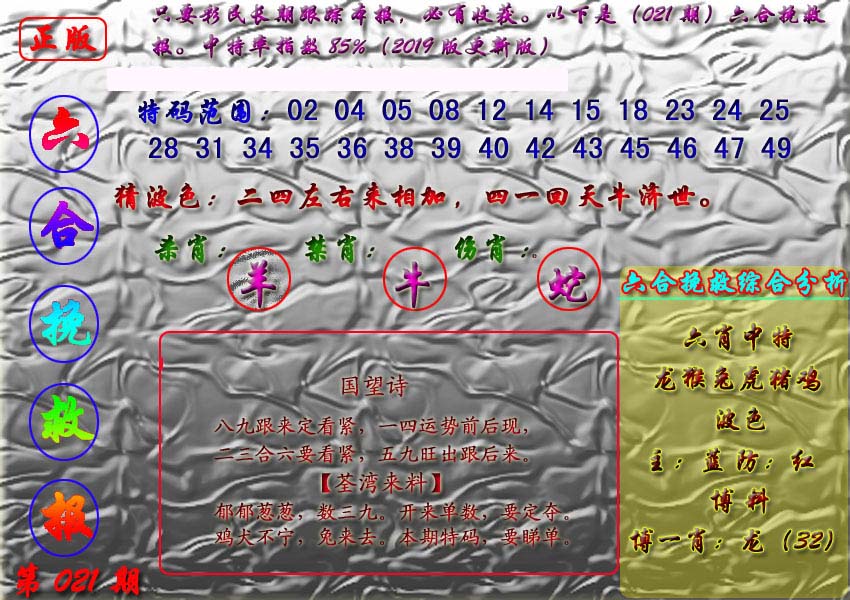 正版
只要彩民长期跟踪本报，必有收获。以下是（021期）六合挽救
报。中特率指数85%（2019版更新版）
特码范围：02 04 05 08 12 14 15 18 23 24 25
28 31 34 35 36 38 39 40 42 43 45 46 47 49
猜波色：二四左右来相加，四一回天牛济世。
杀肖：羊 禁肖：牛 伤肖：蛇
六合挽救报
第021期
国望诗
八九跟来定看紧，一四运势前后现，
二三合六要看紧，五九旺出跟后来。
【荃湾来料】
郁郁葱葱，数三九。开来单数，要定夺。
鸡犬不宁，兔来去。本期特码，要睇单。
六合挽救综合分析
六肖中特
龙猴兔虎猪鸡
波色
主：蓝防：红
博料
博一肖：龙（32）